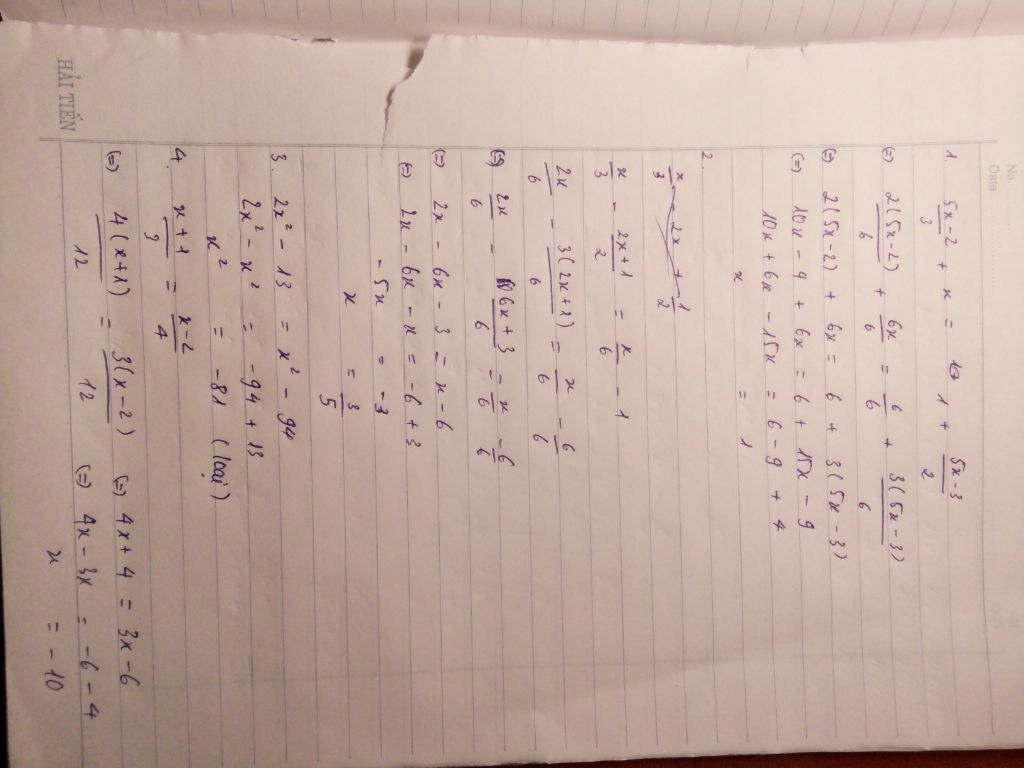 No.
Date
1. (5x-2)/3 + x = 1 + (5x-3)/2
(=) 2(5x-2)/6 + 6x/6 = 6/6 + 3(5x-3)/6
(=) 2(5x-2) + 6x = 6 + 3(5x-3)
(=) 10x - 4 + 6x = 6 + 15x - 9
10x + 6x - 15x = 6 - 9 + 4
x = 1
2.
x/3 - (2x+1)/2
x/3 - (2x+1)/2 = x/6 - 1
2x/6 - 3(2x+1)/6 = x/6 - 6/6
(=) 2x/6 - (6x+3)/6 = x/6 - 6/6
(=) 2x - 6x - 3 = x - 6
(=) 2x - 6x - x = -6 + 3
-5x = -3
x = 3/5
3. 2x² - 13 = x² - 94
2x² - x² = -94 + 13
x² = -81 (loại)
4. (x+1)/3 = (x-2)/4
(=) 4(x+1)/12 = 3(x-2)/12 (=) 4x + 4 = 3x - 6
(=) 4x - 3x = -6 - 4
x = -10
HẢI TIẾN